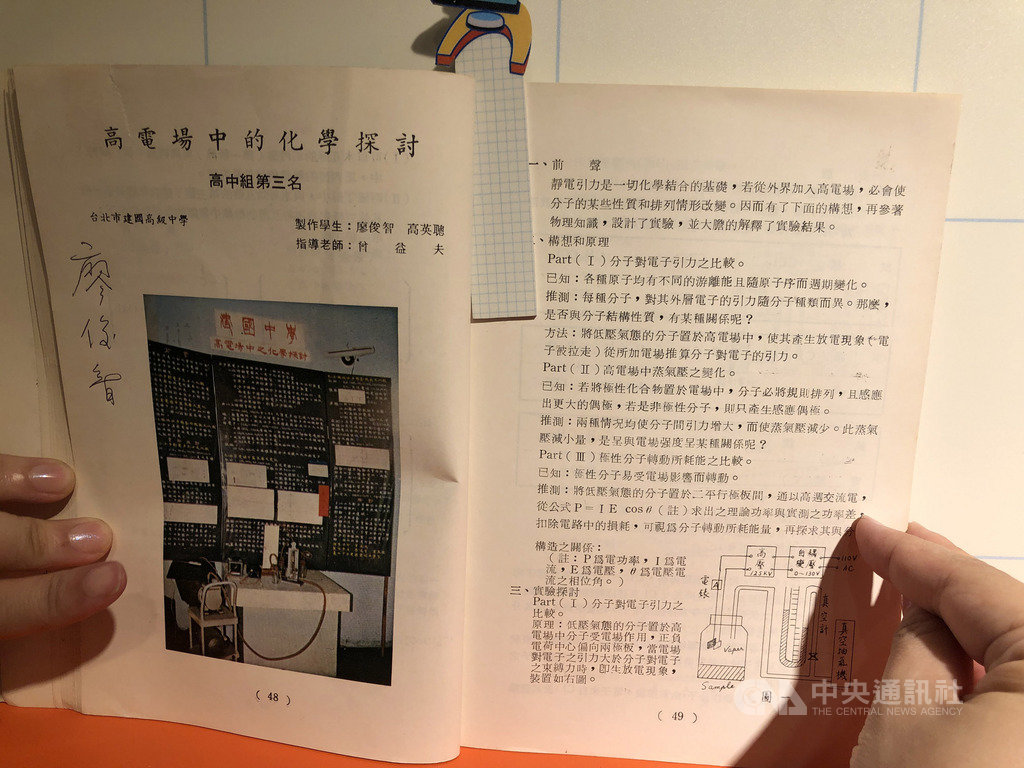 高電場中的化學探討
高中組第三名
台北市建國高級中學
製作學生：廖俊智　高英聰
指導老師：曾　益　夫
廖俊智
建國中學
高電場中之化學探討
( 48 )
一、前　聲
靜電引力是一切化學結合的基礎，若從外界加入高電場，必會使
分子的某些性質和排列情形改變。因而有了下面的構想，再參著
物理知識，設計了實驗，並大膽的解釋了實驗結果。
、構想和原理
Part（Ⅰ）分子對電子引力之比較。
已知：各種原子均有不同的游離能且隨原子序而週期變化。
推測：每種分子，對其外層電子的引力隨分子種類而異。那麼，
是否與分子結構性質，有某種關係呢？
方法：將低壓氣態的分子置於高電場中，使其產生放電現象（電
子波拉走）從所加電場推算分子對電子的引力。
Part（Ⅱ）高電場中蒸氣壓之變化。
已知：若將極性化合物置於電場中，分子必將規則排列，且感應
出更大的偶極，若是非極性分子，則只產生感應偶極。
推測：兩種情況均使分子間引力增大，而使蒸氣壓減少。此蒸氣
壓減小量，是呈與電場强度呈某種關係呢？
Part（Ⅲ）極性分子轉動所耗能之比較。
已知：極性分子易受電場影響而轉動。
推測：將低壓氣態的分子置於二平行極板間，通以高週交流電，
從公式P＝IE cosθ（註）求出之理論功率與實測之功率差，
扣除電路中的損耗，可視爲分子轉動所耗能量，再探求其與
構造之關係：
（註：P爲電功率，I爲電
流，E爲電壓，θ爲電壓電
流之相位角。）
三、實驗探討
Part（Ⅰ）分子對電子引力之
比較。
原理：低壓氣態的分子置於高
電場中分子受電場作用，正負
電荷中心偏向兩極板，當電場
對電子之引力大於分子對電子
之束縛力時，卽生放電現象，
裝置如右圖。
高壓
12.5KV
自耦變壓
0-130V
110V
AC
電表
A
Vaper
Sample
真空計
真空抽氣機
圖
( 49 )
中央通訊社
THE CENTRAL NEWS AGENCY